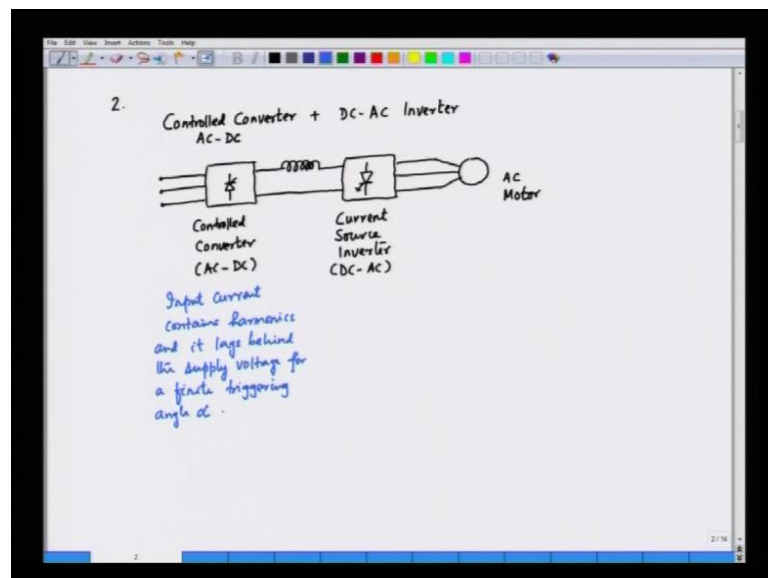 File Edit View Insert Actions Tools Help
2.
Controlled Converter + DC-AC Inverter
AC-DC
AC
Motor
Controlled
Converter
(AC-DC)
Current
Source
Inverter
(DC-AC)
Input Current
contains harmonics
and it lags behind
the supply voltage for
a finite triggering
angle α .
2/14
2